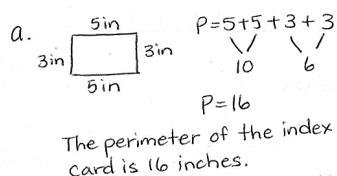 a.
5in
3in
3in
5in
P=5+5+3+3
10 6
P=16
The perimeter of the index
card is 16 inches.